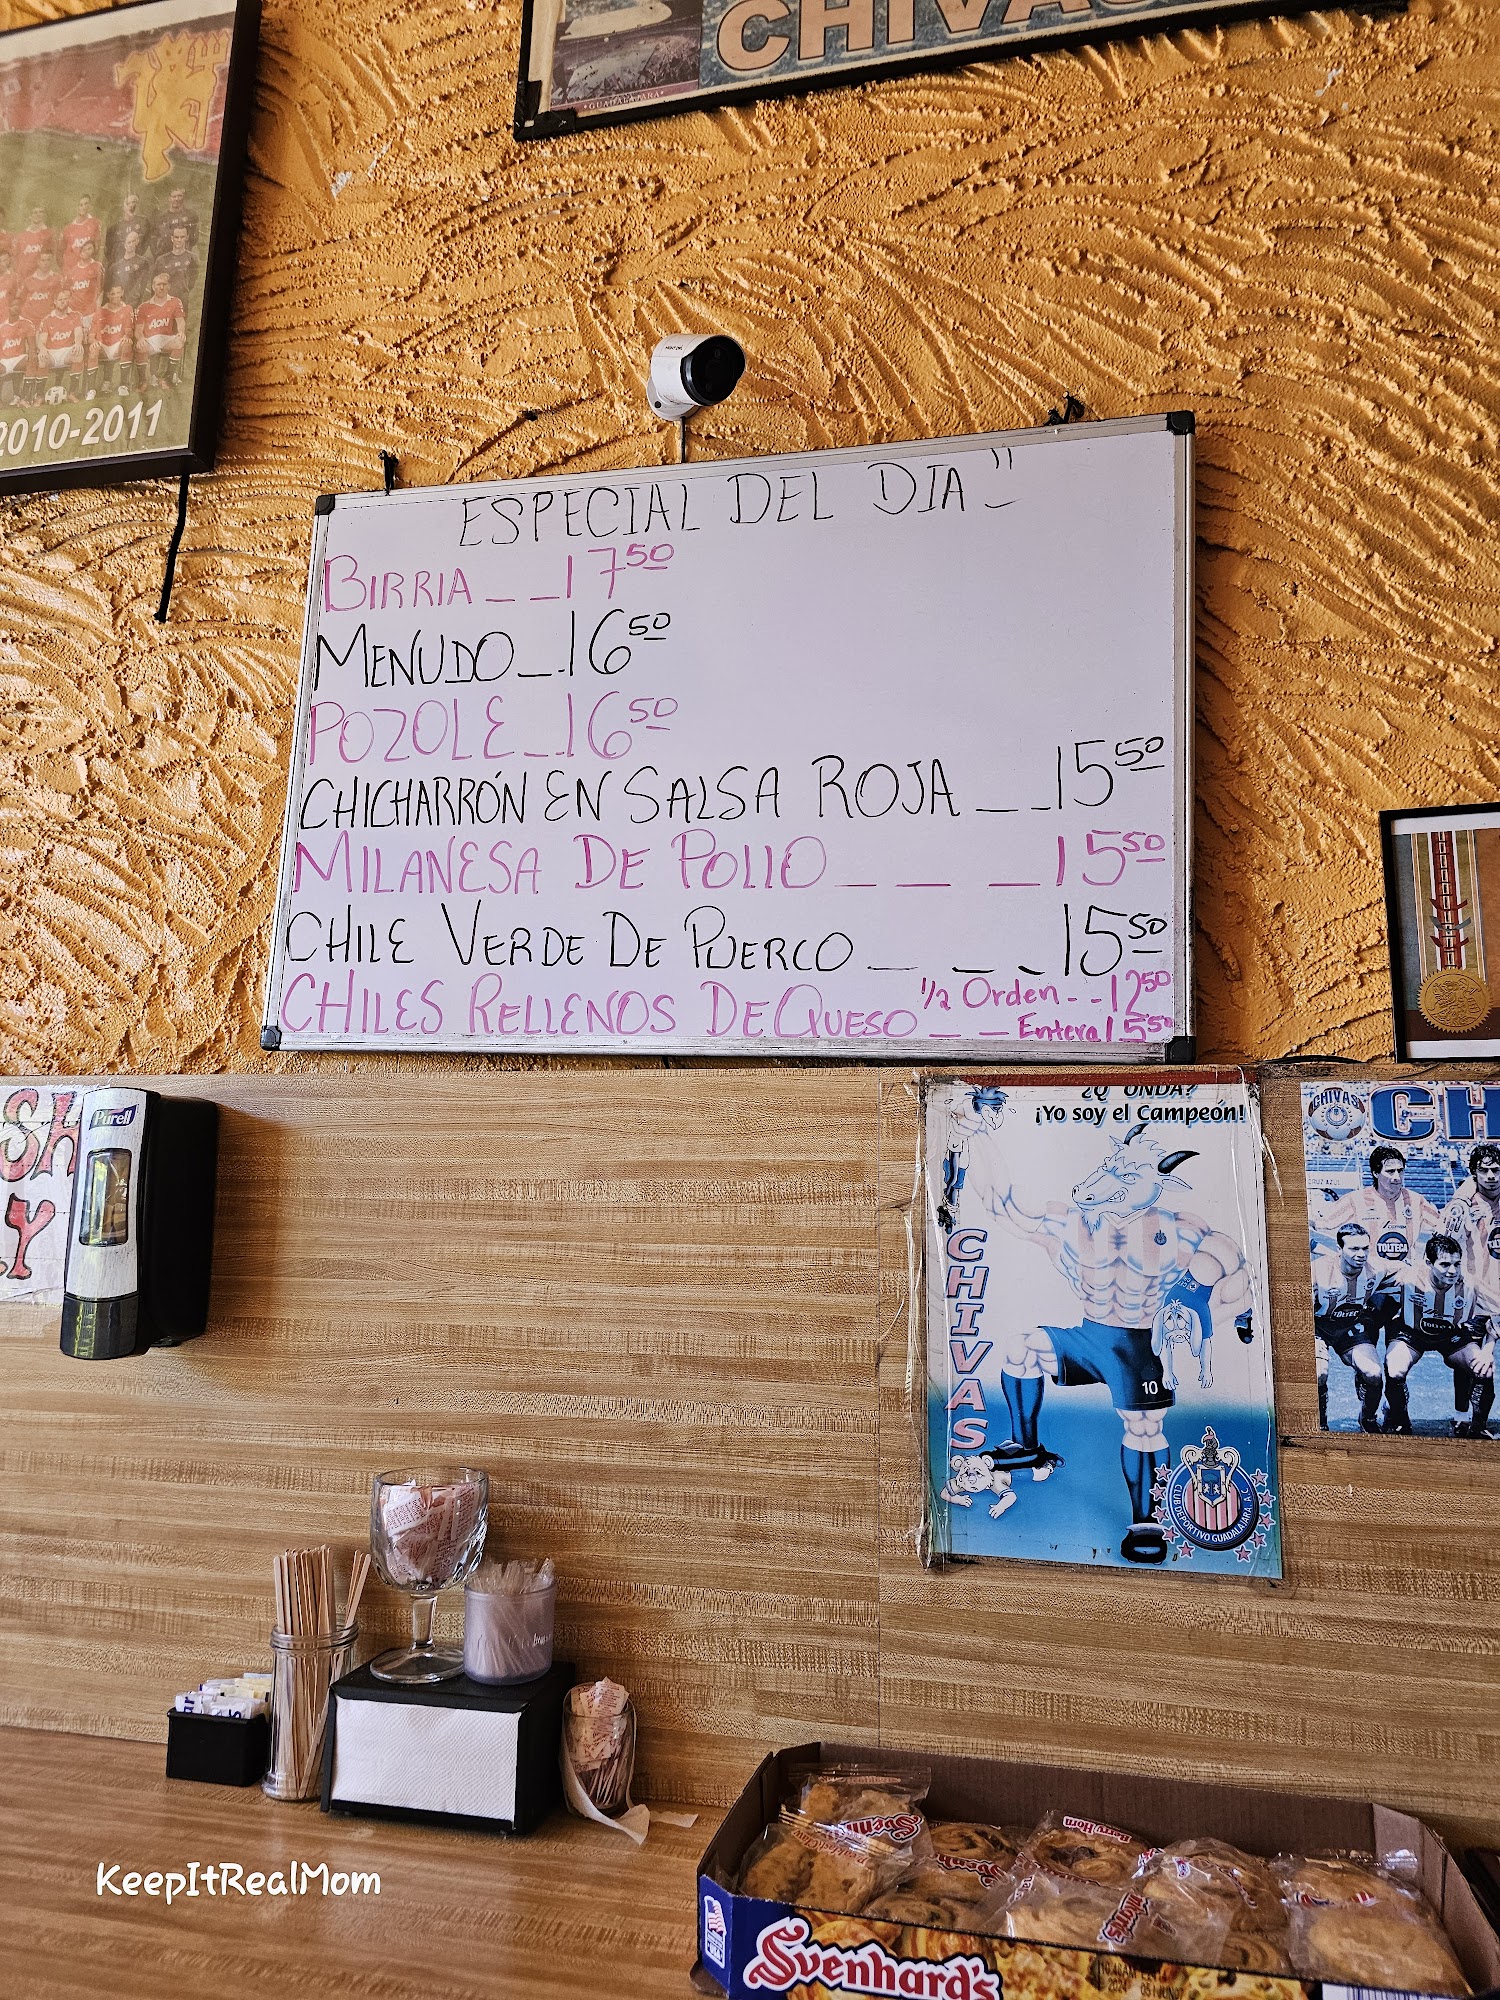 CHIVAS
GUADALAJARA
AON
AON
AON
AON
2010-2011
ESPECIAL DEL DIA"
BIRRIA _ _ 17 50
MENUDO _ . 16 50
POZOLE _ _ 16 50
CHICHARRÓN EN SALSA ROJA _ _ 15 50
MILANESA DE POLLO _ _ _ 15 50
CHILE VERDE DE PUERCO _ _ _ 15 50
CHILES RELLENOS DE QUESO 1/2 Orden - - 12 50
_ _ Entera 15 50
Purell
¿Q' ONDA?
¡Yo soy el Campeón!
CHIVAS
10
CLUB DEPORTIVO GUADALAJARA A.C.
CHIVAS
CH
CRUZ AZUL
TOLTECA
KeepItRealMom
Berry Horn
Svenhard's